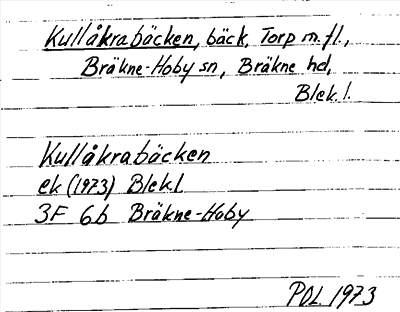 Kullåkrabäcken, bäck, Torp m.fl.,
Bräkne-Hoby sn, Bräkne hd,
Blek. l.
Kullåkrabäcken
ek (1973) Blek.l
3F 6b Bräkne-Hoby
POL 1973